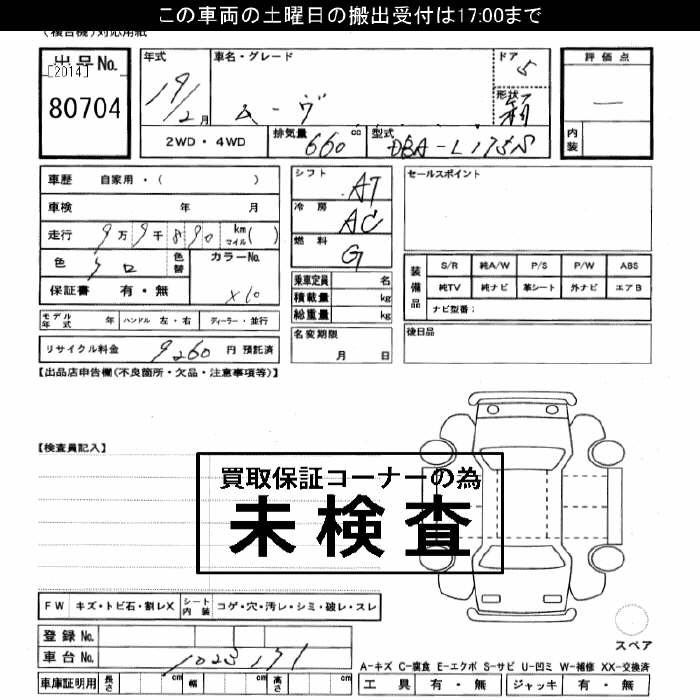 この車両の土曜日の搬出受付は17:00まで
(複合機)対応用紙
出品No. [2014] 80704
年式 19/2月
車名・グレード ムーヴ
ドア 5
形状 箱
評価点 —
内装
2WD・4WD 排気量 660 cc 型式 DBA-L175S
車歴 自家用・( )
車検 年 月
走行 9万9千890 km マイル( )
色 シロ 色替 カラーNo. X10
保証書 有・無
シフト AT
冷房 AC
燃料 G
乗車定員 名
積載量 kg
総重量 kg
セールスポイント
装備品 S/R 純A/W P/S P/W ABS
純TV 純ナビ 革シート 外ナビ エアB
ナビ型番:
モデル年式 年 ハンドル 左・右 ディーラー・並行
名変期限 月 日
後日品
リサイクル料金 9260 円 預託済
【出品店申告欄(不良箇所・欠品・注意事項等)】
【検査員記入】
買取保証コーナーの為
未検査
FW キズ・トビ石・割レX シート内装 コゲ・穴・汚レ・シミ・破レ・スレ
登録No.
車台No. 1023171
スペア
A-キズ C-腐食 E-エクボ S-サビ U-凹ミ W-補修 XX-交換済
車庫証明用 長さ cm 幅 cm 高さ cm
工具 有・無 ジャッキ 有・無